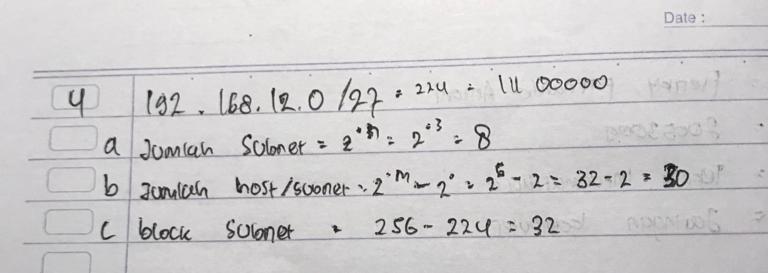 Date :
4 192.168.12.0 /27 = 224 = 111 00000
a Jumlah Subnet = 2^n = 2^3 = 8
b Jumlah host/subnet = 2^m - 2 = 2^5 - 2 = 32 - 2 = 30
c block Subnet = 256 - 224 = 32